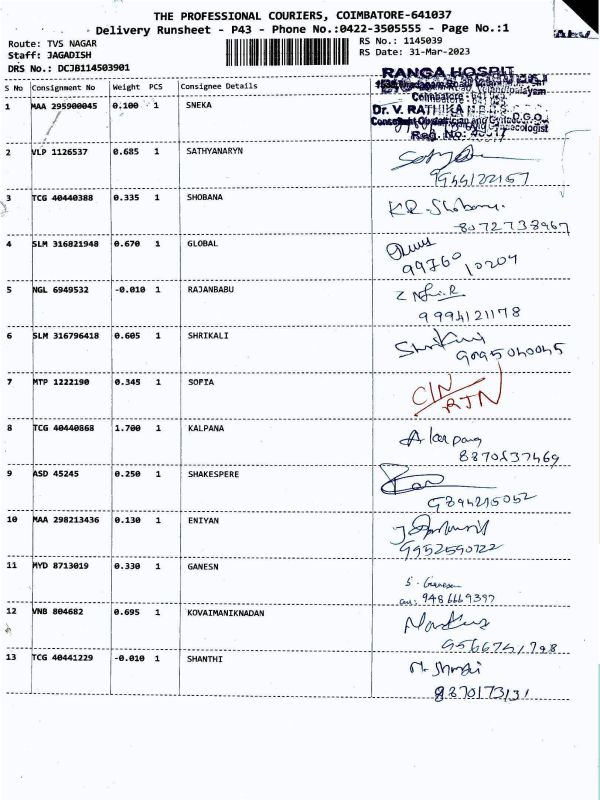 THE PROFESSIONAL COURIERS, COIMBATORE-641037
Delivery Runsheet - P43 - Phone No.:0422-3505555 - Page No.:1
Route: TVS NAGAR
RS No.: 1145039
Staff: JAGADISH
RS Date: 31-Mar-2023
DRS No.: DCJB114503901
S No Consignment No Weight PCS Consignee Details
RANGA HOSPIT
Coimbatore
Dr. V. RATHIKA
1 MAA 295900045 0.100 1 SNEKA
Reg. No:
2 VLP 1126537 0.685 1 SATHYANARYN
9944122157
3 TCG 40440388 0.335 1 SHOBANA K.R.Shobana.
8072738967
4 SLM 316821948 0.670 1 GLOBAL
99760 10204
5 NGL 6949532 -0.010 1 RAJANBABU
9994121178
6 SLM 316796418 0.605 1 SHRIKALI
9095040045
7 MTP 1222190 0.345 1 SOFIA CIN/
RTN
8 TCG 40440868 1.700 1 KALPANA Kalpana
8870537469
9 ASD 45245 0.250 1 SHAKESPERE
9894215052
10 MAA 298213436 0.130 1 ENIYAN
9952590722
11 MYD 8713019 0.330 1 GANESN S. Ganesan
9486669397
12 VNB 804682 0.695 1 KOVAIMANIKNADAN
9566751798
13 TCG 40441229 -0.010 1 SHANTHI
8870173131